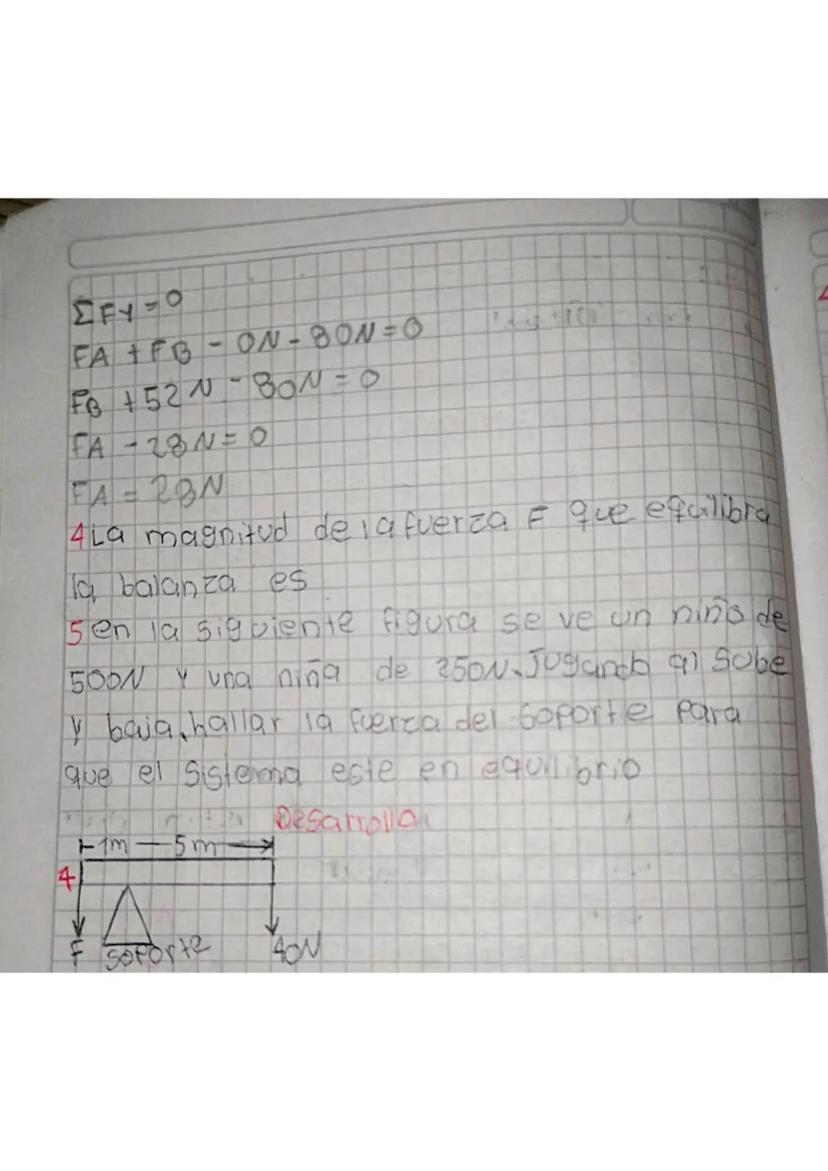 ΣFy=0
FA + FB - 0N - 80N = 0
FB + 52N - 80N = 0
FA - 28N = 0
FA = 28N
4 La magnitud de la fuerza F que equilibra
la balanza es
5 en la siguiente figura se ve un niño de
500N y una niña de 250N. Jugando al sube
y baja, hallar la fuerza del soporte para
que el sistema este en equilibrio
Desarrollo
1m — 5m
4
F soporte 40N